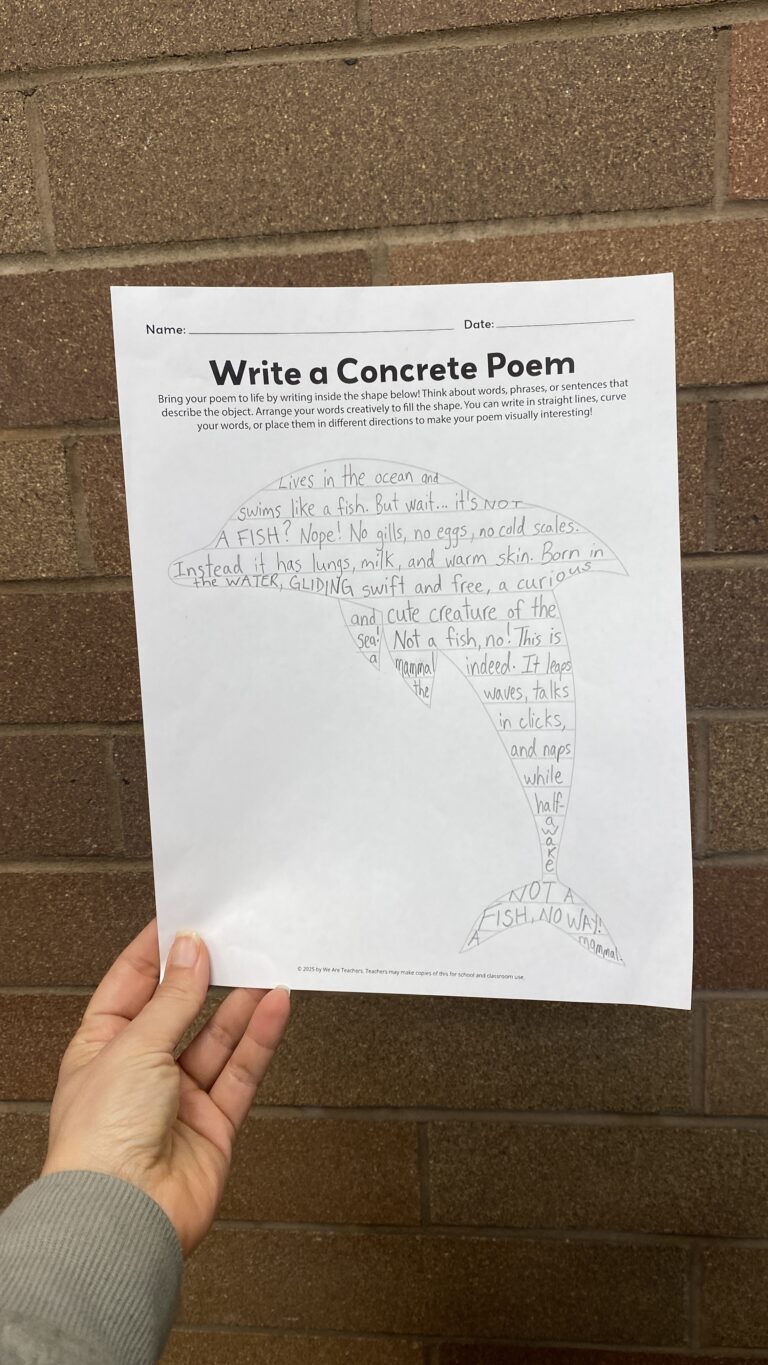 Name:
Date:
Write a Concrete Poem
Bring your poem to life by writing inside the shape below! Think about words, phrases, or sentences that
describe the object. Arrange your words creatively to fill the shape. You can write in straight lines, curve
your words, or place them in different directions to make your poem visually interesting!
Lives in the ocean and
swims like a fish. But wait... it's NOT
A FISH? Nope! No gills, no eggs, no cold scales.
Instead it has lungs, milk, and warm skin. Born in
the WATER, GLIDING swift and free, a curious
and cute creature of the
sea! Not a fish, no! This is
a mammal indeed. It leaps
the waves, talks
in clicks,
and naps
while
half-
awake
NOT A
FISH, NO WAY!
A mammal.
© 2025 by We Are Teachers. Teachers may make copies of this for school and classroom use.